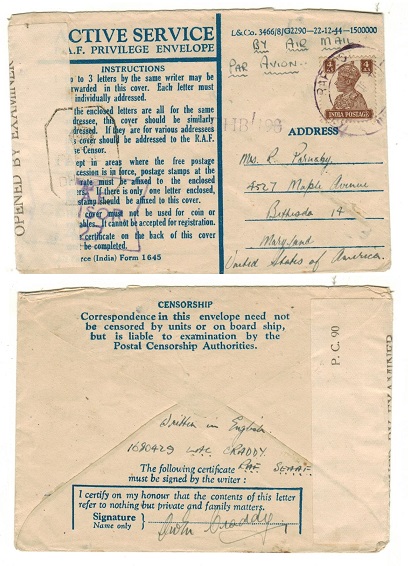 CTIVE SERVICE
A.F. PRIVILEGE ENVELOPE
INSTRUCTIONS
up to 3 letters by the same writer may be
rwarded in this cover. Each letter must
individually addressed.
the enclosed letters are all for the same
dressee, this cover should be similarly
dressed. If they are for various addressees
cover should be addressed to the R.A.F.
se Censor.
cept in areas where the free postage
cession is in force, postage stamps at the
rate must be affixed to the enclosed
ers. If there is only one letter enclosed,
stamp should be affixed to this cover.
cover must not be used for coin or
ables; it cannot be accepted for registration.
certificate on the back of this cover
be completed.
rce (India) Form 1645
OPENED BY EXAMINER
L&Co. 3466/8JG2290–22-12-44–1500000
BY AIR MAIL
PAR AVION..
3 A
INDIA POSTAGE
ADDRESS
Mrs. R.
4527 Maple Avenue
Bethesda 14
Maryland
United States of America.
CENSORSHIP
Correspondence in this envelope need not
be censored by units or on board ship,
but is liable to examination by the
Postal Censorship Authorities.
P.C. 90
BY EXAMINER
Written in English
1680429 LAC. CRADDY.
RAF SEAAF
The following certificate
must be signed by the writer :
I certify on my honour that the contents of this letter
refer to nothing but private and family matters.
Signature
Name only
Craddy